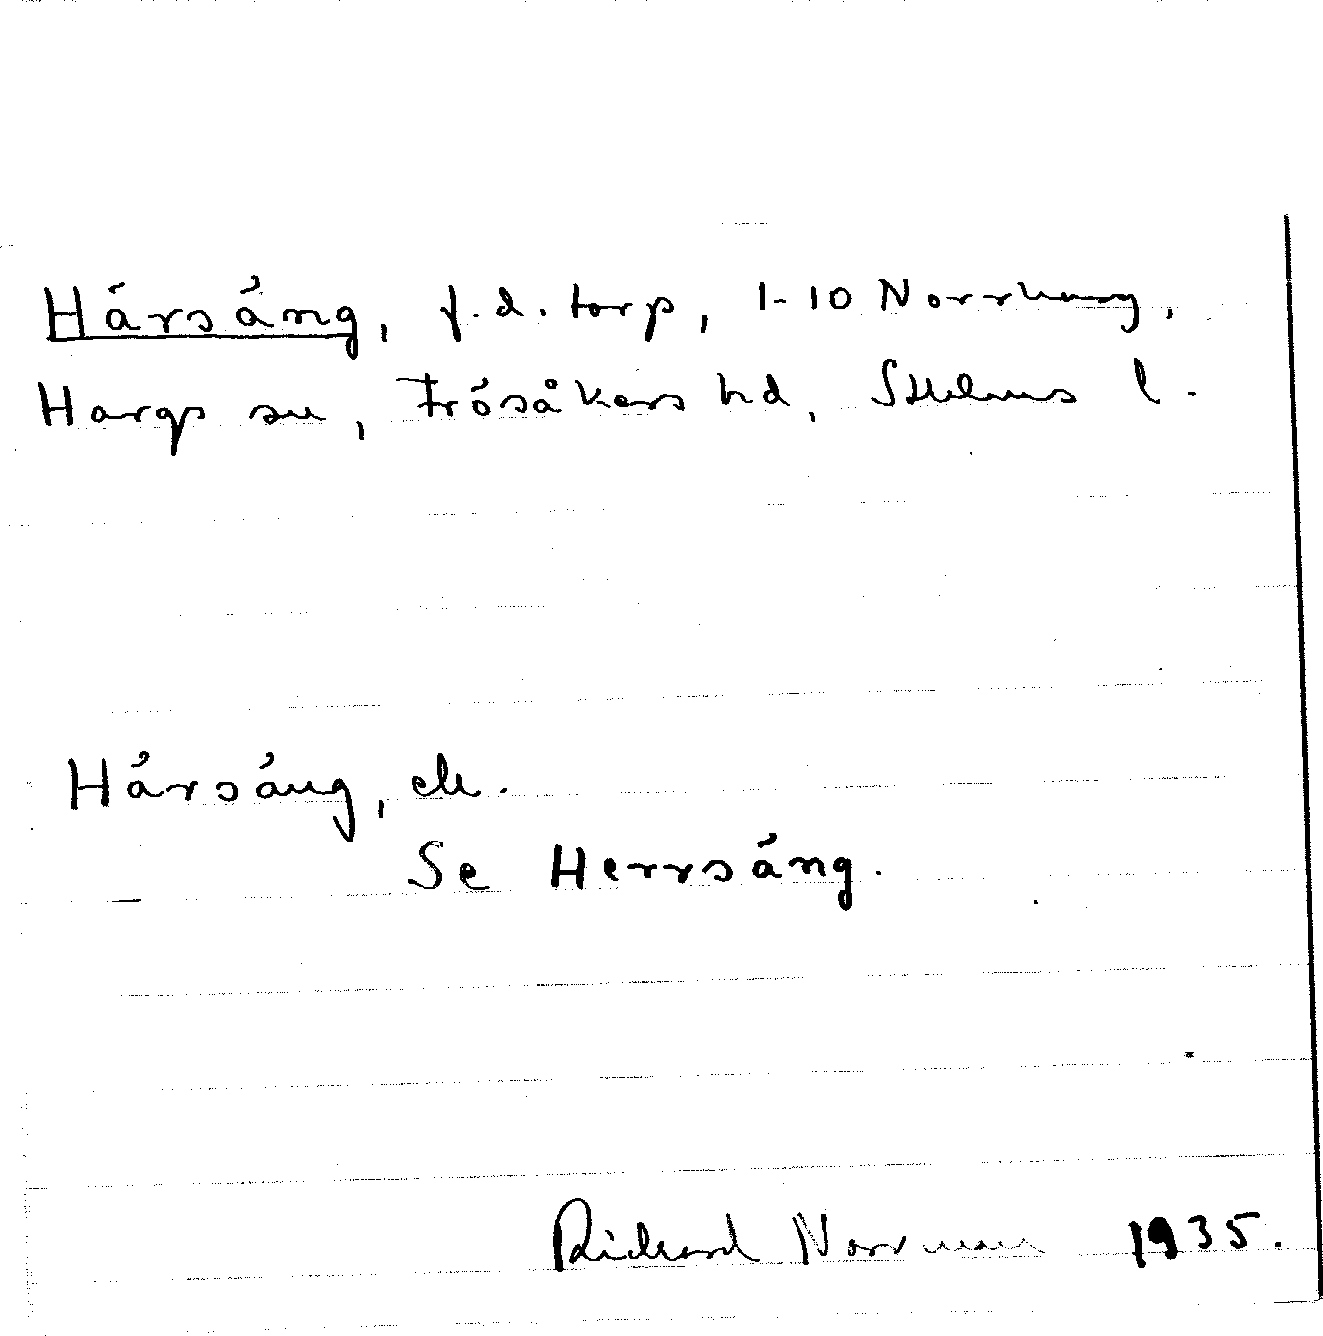 Härsäng, f.d. torp, 1-10 Norrharg,
Hargs sn, Frösåkers hd, Sthlms l.
Härsäng, ell.
Se Herrsäng.
Richard Norrman 1935.